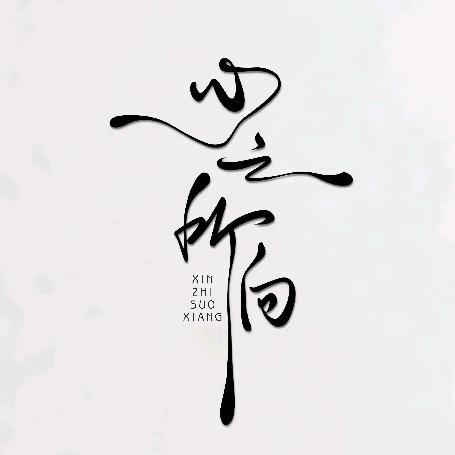 心之所向
XIN
ZHI
SUO
XIANG